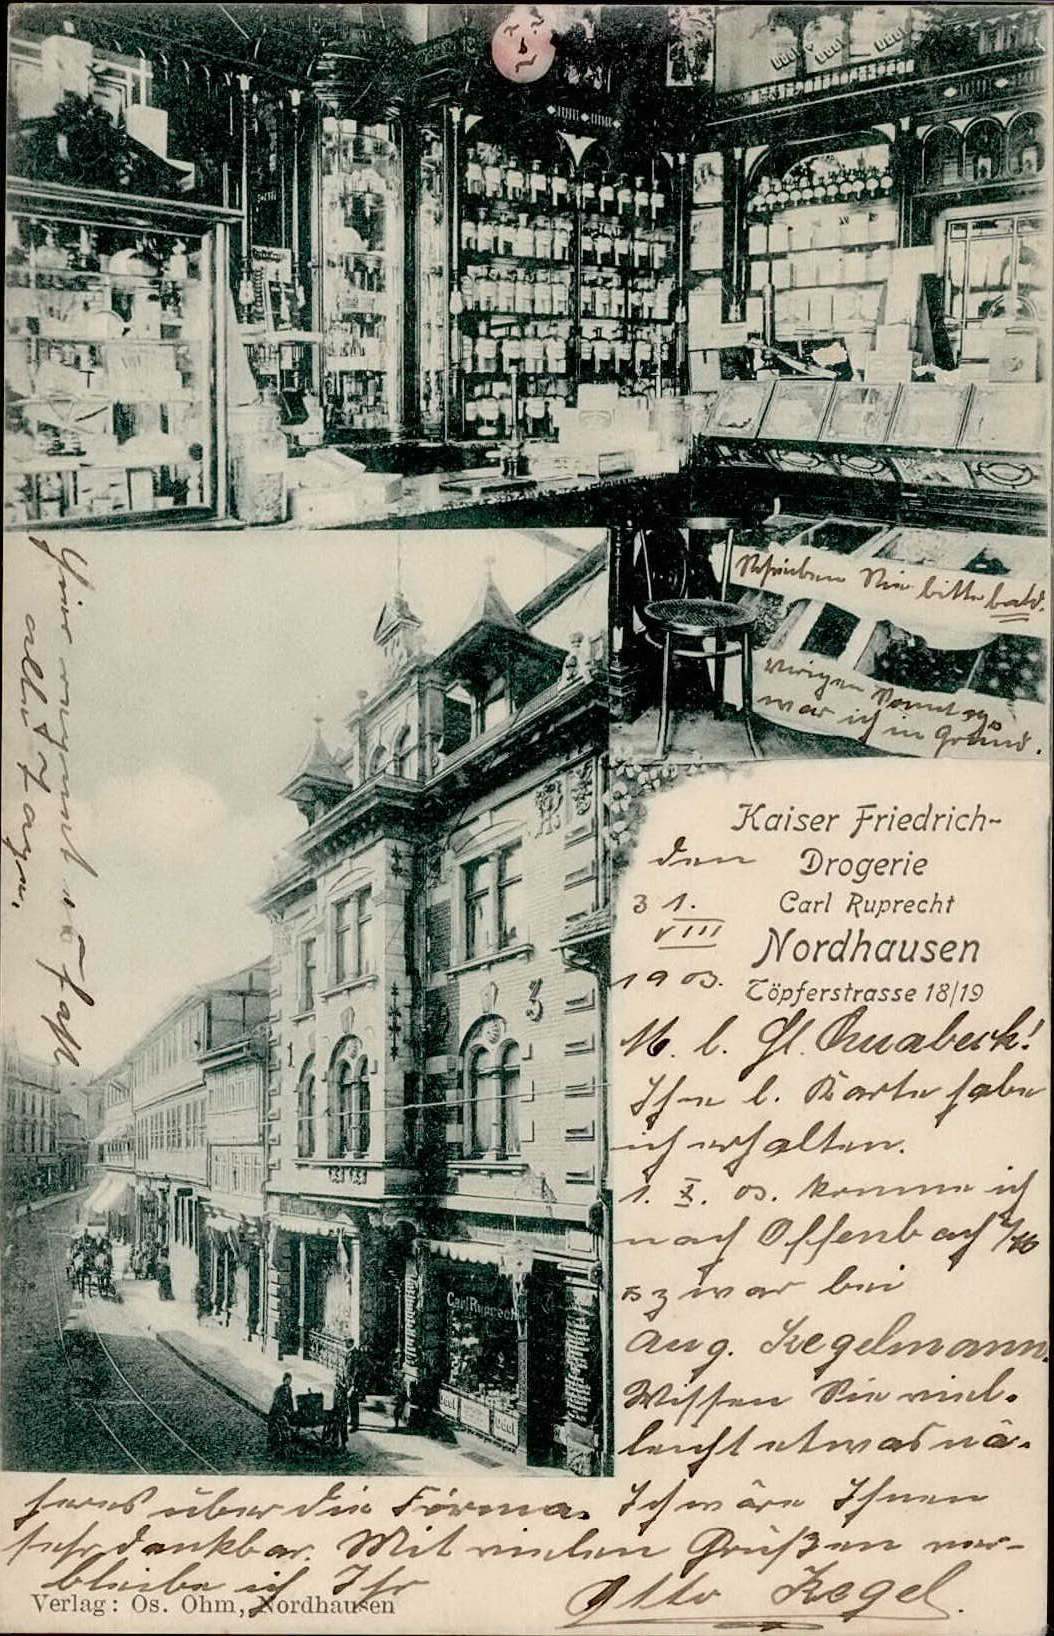 Schreiben Sie bitte bald.
Vorigen Sonntag
war ich in Gründ.
Kaiser Friedrich-
Drogerie
Carl Ruprecht
Nordhausen
Töpferstrasse 18/19
den
31.
VIII
1903.
M. l. Hl. Quabeck!
Ihre l. Karte habe
ich erhalten.
1. X. 03. komme ich
nach Offenbach a/M
zwar bei
Aug. Kegelmann.
Wissen Sie viel-
leicht etwas nä-
heres über die Firma. Ich wäre Ihnen
sehr dankbar. Mit vielen Grüßen ver-
bleibe ich Ihr Otto Kegel.
Verlag: Os. Ohm, Nordhausen
Hier
alles zagen.
3
1
Carl Ruprecht
Odol
Odol